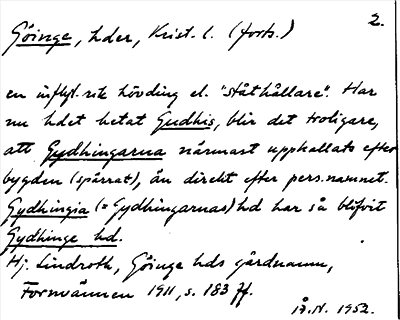 2.
Göinge, hder, Krist. l. (forts.)
en inflyt.rik hövding el. "ståthållare". Har
nu hdet hetat Gudhis, blir det troligare,
att Gydhingarna närmast uppkallats efter
bygden (spärrat), än direkt efter pers.namnet.
Gydhingia (= Gydhingarnas) hd har så blifvit
Gydhinge hd.
Hj. Lindroth, Göinge hds gårdnamn,
Fornvännen 1911, s. 183 ff.
1952.